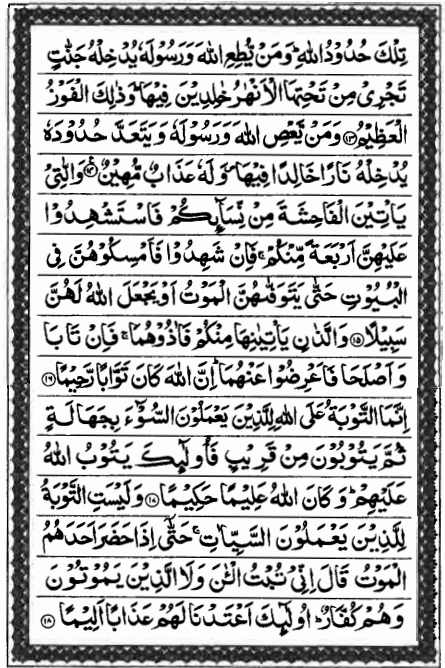 تِلْكَ حُدُوْدُ اللّٰهِ ؕ وَمَنْ يُّطِعِ اللّٰهَ وَرَسُوْلَهٗ يُدْخِلْهُ جَنّٰتٍ
تَجْرِىْ مِنْ تَحْتِهَا الْاَنْهٰرُ خٰلِدِيْنَ فِيْهَا ؕ وَذٰلِكَ الْفَوْزُ
الْعَظِيْمُ ﴿۱۳﴾ وَمَنْ يَّعْصِ اللّٰهَ وَرَسُوْلَهٗ وَيَتَعَدَّ حُدُوْدَهٗ
يُدْخِلْهُ نَارًا خَالِدًا فِيْهَا ۪ وَلَهٗ عَذَابٌ مُّهِيْنٌ ﴿۱۴﴾ ع وَالّٰتِىْ
يَاْتِيْنَ الْفَاحِشَةَ مِنْ نِّسَآئِكُمْ فَاسْتَشْهِدُوْا
عَلَيْهِنَّ اَرْبَعَةً مِّنْكُمْ ۚ فَاِنْ شَهِدُوْا فَاَمْسِكُوْهُنَّ فِى
الْبُيُوْتِ حَتّٰى يَتَوَفّٰهُنَّ الْمَوْتُ اَوْ يَجْعَلَ اللّٰهُ لَهُنَّ
سَبِيْلًا ﴿۱۵﴾ وَالَّذٰنِ يَاْتِيٰنِهَا مِنْكُمْ فَاٰذُوْهُمَا ۚ فَاِنْ تَابَا
وَاَصْلَحَا فَاَعْرِضُوْا عَنْهُمَا ؕ اِنَّ اللّٰهَ كَانَ تَوَّابًا رَّحِيْمًا ﴿۱۶﴾
اِنَّمَا التَّوْبَةُ عَلَى اللّٰهِ لِلَّذِيْنَ يَعْمَلُوْنَ السُّوْٓءَ بِجَهَالَةٍ
ثُمَّ يَتُوْبُوْنَ مِنْ قَرِيْبٍ فَاُولٰٓئِكَ يَتُوْبُ اللّٰهُ
عَلَيْهِمْ ؕ وَكَانَ اللّٰهُ عَلِيْمًا حَكِيْمًا ﴿۱۷﴾ وَلَيْسَتِ التَّوْبَةُ
لِلَّذِيْنَ يَعْمَلُوْنَ السَّيِّاٰتِ ۚ حَتّٰٓى اِذَا حَضَرَ اَحَدَهُمُ
الْمَوْتُ قَالَ اِنِّىْ تُبْتُ الْـٰٔنَ وَلَا الَّذِيْنَ يَمُوْتُوْنَ
وَهُمْ كُفَّارٌ ؕ اُولٰٓئِكَ اَعْتَدْنَا لَهُمْ عَذَابًا اَلِيْمًا ﴿۱۸﴾